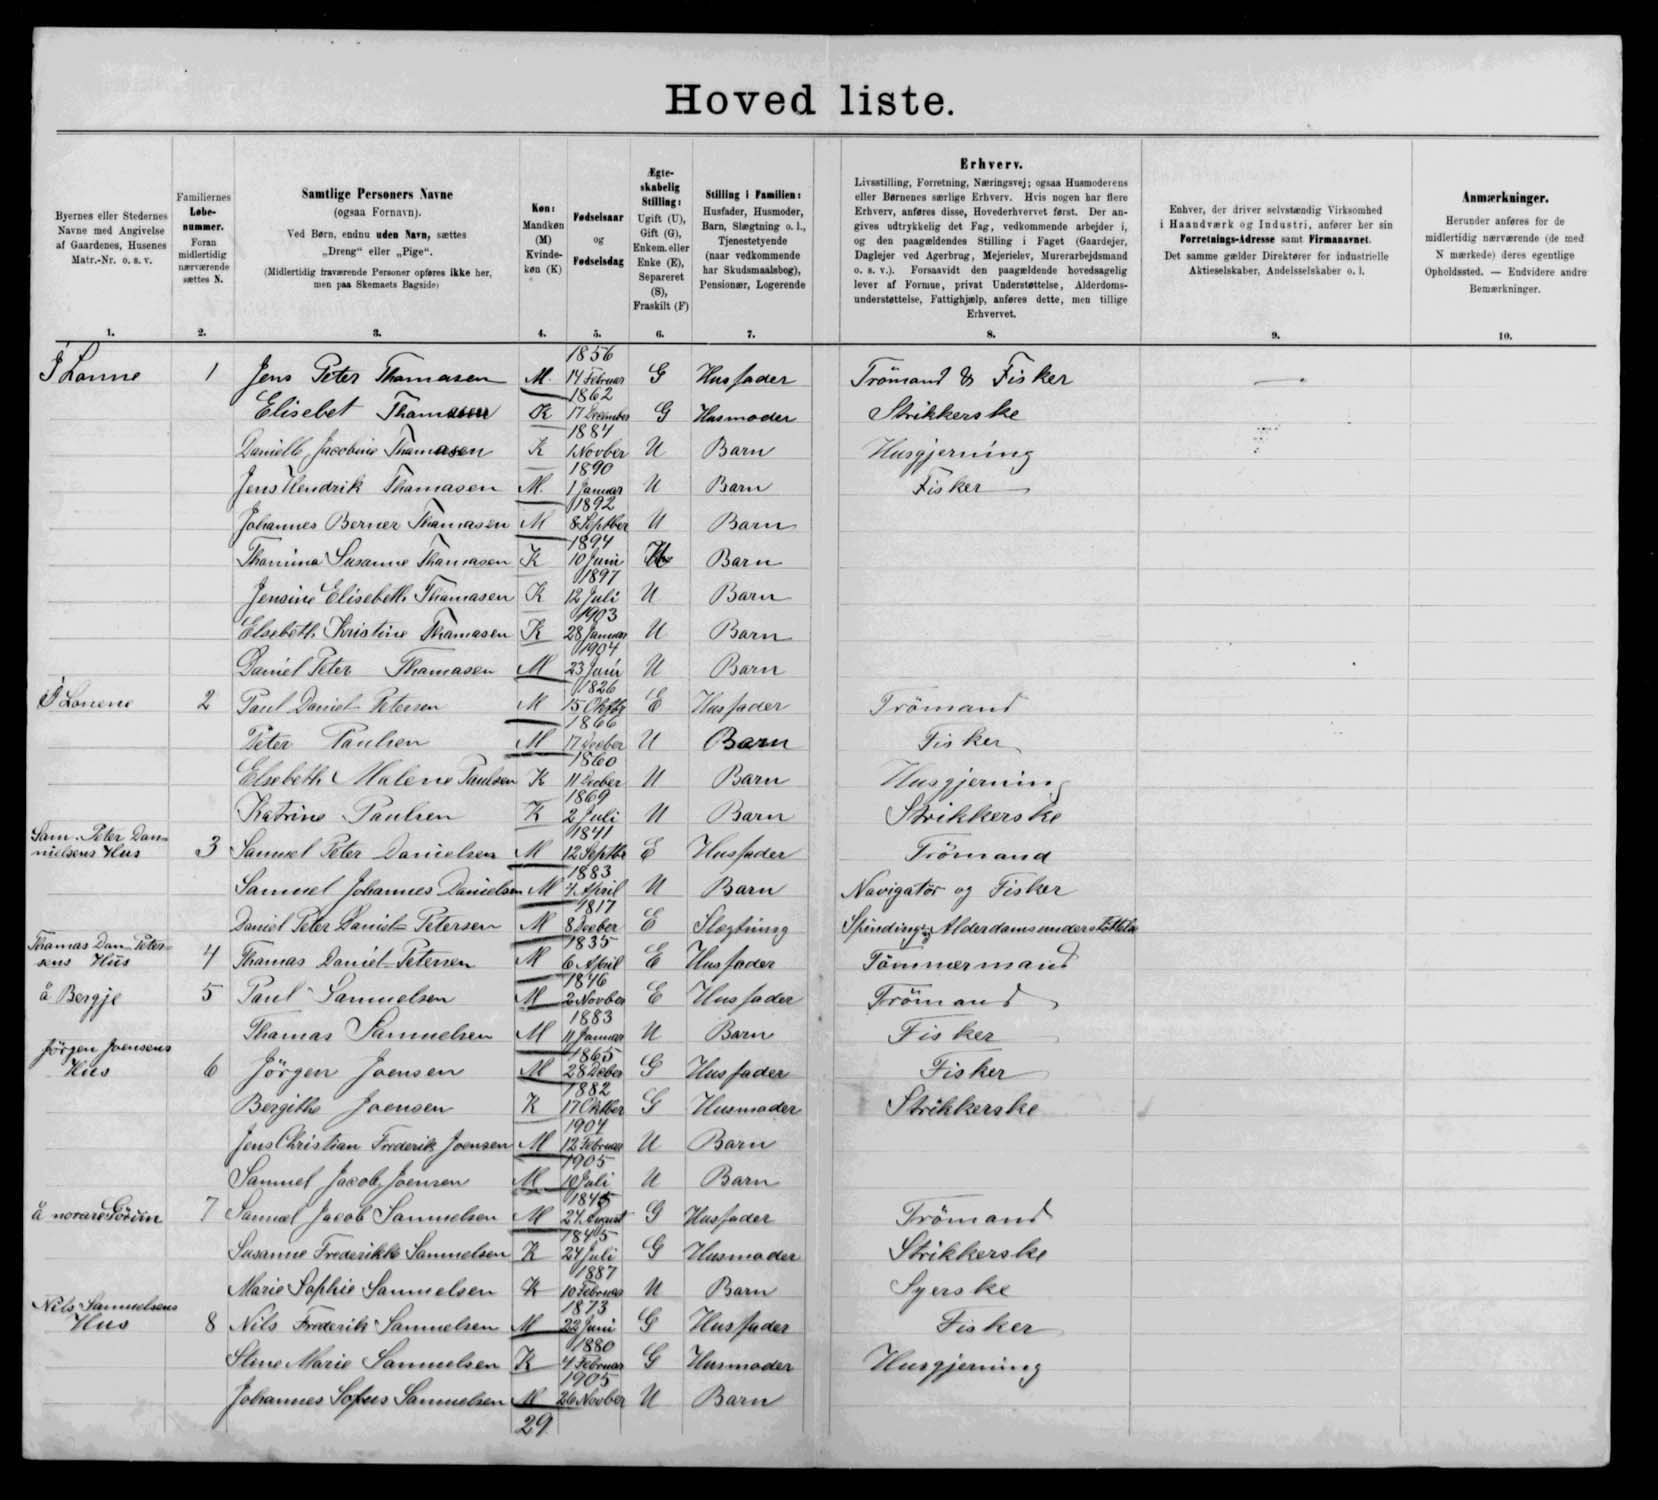 Hoved liste.
Byernes eller Stedernes
Navne med Angivelse
af Gaardenes, Husenes
Matr.-Nr. o. s. v.
1.
Familiernes
Løbe-
nummer.
Foran
midlertidig
nærværende
sættes N.
2.
Samtlige Personers Navne
(ogsaa Fornavn).
Ved Børn, endnu uden Navn, sættes
„Dreng“ eller „Pige“.
(Midlertidig fraværende Personer opføres ikke her,
men paa Skemaets Bagside)
3.
Køn:
Mandkøn
(M)
Kvinde-
køn (K)
4.
Fødselsaar
og
Fødselsdag
5.
Ægte-
skabelig
Stilling:
Ugift (U),
Gift (G),
Enkem. eller
Enke (E),
Separeret
(S),
Fraskilt (F)
6.
Stilling i Familien:
Husfader, Husmoder,
Barn, Slægtning o. l.,
Tjenestetyende
(naar vedkommende
har Skudsmaalsbog),
Pensionær, Logerende
7.
Erhverv.
Livsstilling, Forretning, Næringsvej; ogsaa Husmoderens
eller Børnenes særlige Erhverv. Hvis nogen har flere
Erhverv, anføres disse, Hovederhvervet først. Der an-
gives udtrykkelig det Fag, vedkommende arbejder i,
og den paagældendes Stilling i Faget (Gaardejer,
Daglejer ved Agerbrug, Mejerielev, Murerarbejdsmand
o. s. v.). Forsaavidt den paagældende hovedsagelig
lever af Formue, privat Understøttelse, Alderdoms-
understøttelse, Fattighjælp, anføres dette, men tillige
Erhvervet.
8.
Enhver, der driver selvstændig Virksomhed
i Haandværk og Industri, anfører her sin
Forretnings-Adresse samt Firmanavnet.
Det samme gælder Direktører for industrielle
Aktieselskaber, Andelsselskaber o. l.
9.
Anmærkninger.
Herunder anføres for de
midlertidig nærværende (de med
N mærkede) deres egentlige
Opholdssted. — Endvidere andre
Bemærkninger.
10.
1856
1 Jens Peter Thomasen M. 14 Februar G Husfader Trömand & Fisker
1862
Elisebet Thomasen K 17 December G Husmoder Strikkerske
1884
Danielle Jacobine Thomasen K 1 Novber U Barn Husgjerning
1890
Jens Hendrik Thomasen M. 1 Januar U Barn Fisker
1892
Johannes Berner Thomasen M 8 Septber U Barn
1894
Thomina Susanne Thomasen K 10 Juni Barn
1897
Jensine Elisebeth Thomasen K 12 Juli U Barn
1903
Elsebeth Kristine Thomasen K 28 Januar U Barn
1904
Daniel Peter Thomasen M 23 Juni U Barn
1826
2 Paul Daniel Petersen M 15 Oktbr E Husfader Trömand
1866
Peter Paulsen M 17 Deeber U Barn Fisker
1860
Elsebeth Malene Paulsen K 11 Deeber U Barn Husgjerning
1869
Katrine Paulsen K 2 Juli U Barn Strikkerske
1841
Sam. Peter Dan-
nielsens Hus 3 Samuel Peter Danielsen M 12 Septbr E Husfader Trömand
1883
Samuel Johannes Danielsen M 4 April U Barn Navigatör og Fisker
1817
Daniel Peter Daniel-Petersen M 8 Deeber E Slegtning Spinding og Alderdomsunderstöttelse
1835
Thomas Dan-Peter-
sens Hus 4 Thomas Daniel-Petersen M 6 April E Husfader Tömmermand
1846
å Bergje 5 Paul Samuelsen M 2 Novber E Husfader Trömand
1883
Thomas Samuelsen M 11 Januar U Barn Fisker
1865
Jörgen Joensens
Hus 6 Jörgen Joensen M 28 Deber G Husfader Fisker
1882
Bergithe Joensen K 17 Oktber G Husmoder Strikkerske
1904
Jens Christian Frederik Joensen M 12 Februar U Barn
1905
Samuel Jacob Joensen M 10 Juli U Barn
1845
å norare 7 Samuel Jacob Samuelsen M 24 August G Husfader Trömand
1845
Susanne Frederikke Samuelsen K 24 Juli G Husmoder Strikkerske
1887
Marie Sophie Samuelsen K 10 Februar U Barn Syerske
1873
Nils Samuelsens
Hus 8 Nils Frederik Samuelsen M 22 Juni G Husfader Fisker
1880
Stine Marie Samuelsen K 4 Februar G Husmoder Husgjerning
1905
Johannes Sofus Samuelsen M 26 Novber U Barn
29